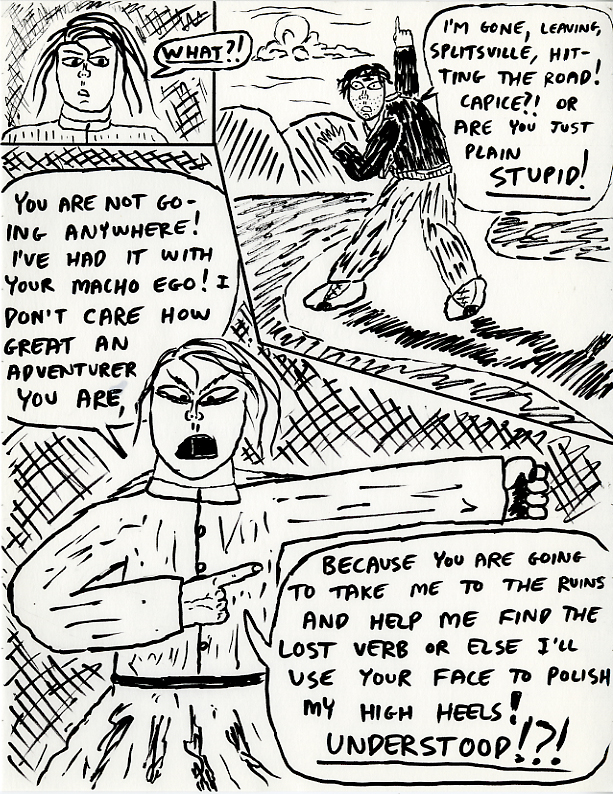 WHAT?!
I'M GONE, LEAVING,
SPLITSVILLE, HIT-
TING THE ROAD!
CAPICE?! OR
ARE YOU JUST
PLAIN
STUPID!
YOU ARE NOT GO-
ING ANYWHERE!
I'VE HAD IT WITH
YOUR MACHO EGO! I
DON'T CARE HOW
GREAT AN
ADVENTURER
YOU ARE,
BECAUSE YOU ARE GOING
TO TAKE ME TO THE RUINS
AND HELP ME FIND THE
LOST VERB OR ELSE I'LL
USE YOUR FACE TO POLISH
MY HIGH HEELS!
UNDERSTOOD!?!